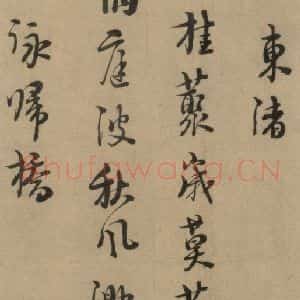 東渚
桂叢歲莫
庭波秋風
詠歸橋
Shufawang.CN